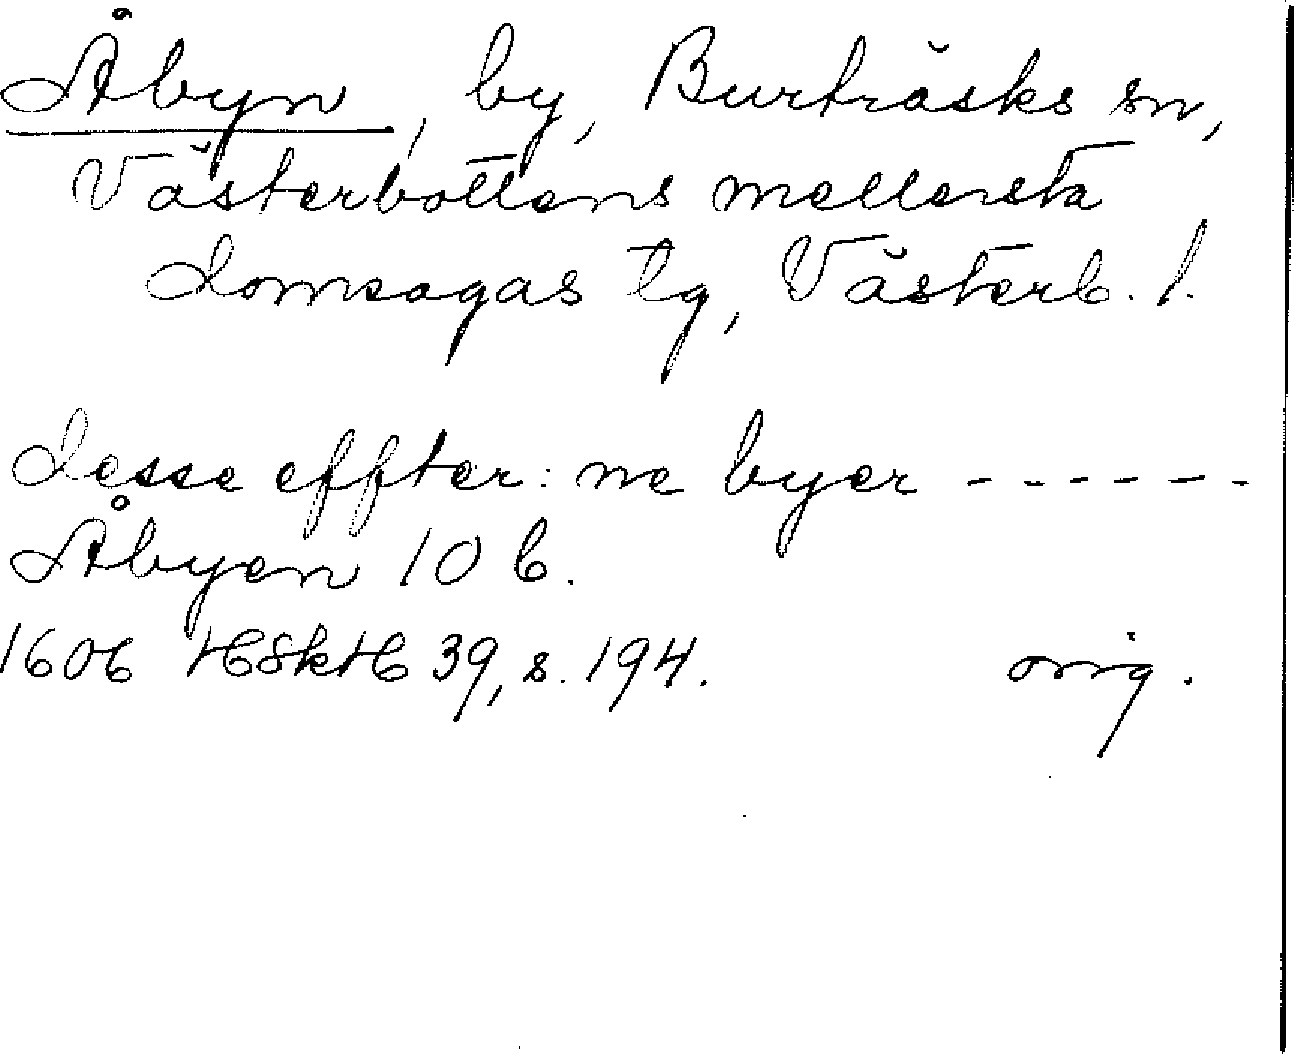 Åbyn, by, Burträsks sn,
Västerbottens mellersta
domsagas tg, Västerb. l.
desse effter: ne byer - - - - - -
Åbyen 10 b.
1606 HSkH 39, s. 194. orig.